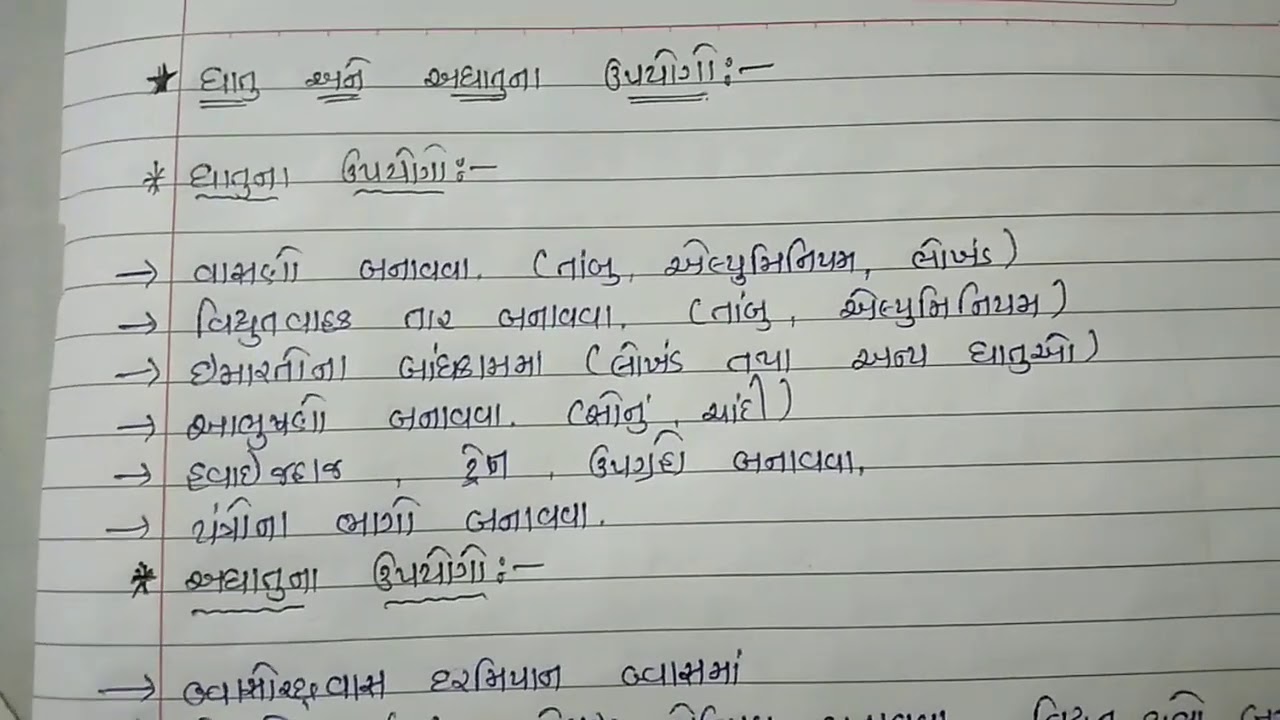 ★ ધાતુ અને અધાતુના ઉપયોગો:-
* ધાતુના ઉપયોગો:-
→ વાસણો બનાવવા. (તાંબુ, એલ્યુમિનિયમ, લોખંડ)
→ વિદ્યુતવાહક તાર બનાવવા. (તાંબુ, એલ્યુમિનિયમ)
→ ઇમારતોના બાંધકામમાં (લોખંડ તથા અન્ય ધાતુઓ)
→ આભુષણો બનાવવા. (સોનું, ચાંદી)
→ હવાઈજહાજ, ટ્રેન, ઉપગ્રહો બનાવવા.
→ યંત્રોના ભાગો બનાવવા.
* અધાતુના ઉપયોગો:-
→ શ્વાસોચ્છ્વાસ દરમિયાન શ્વાસમાં